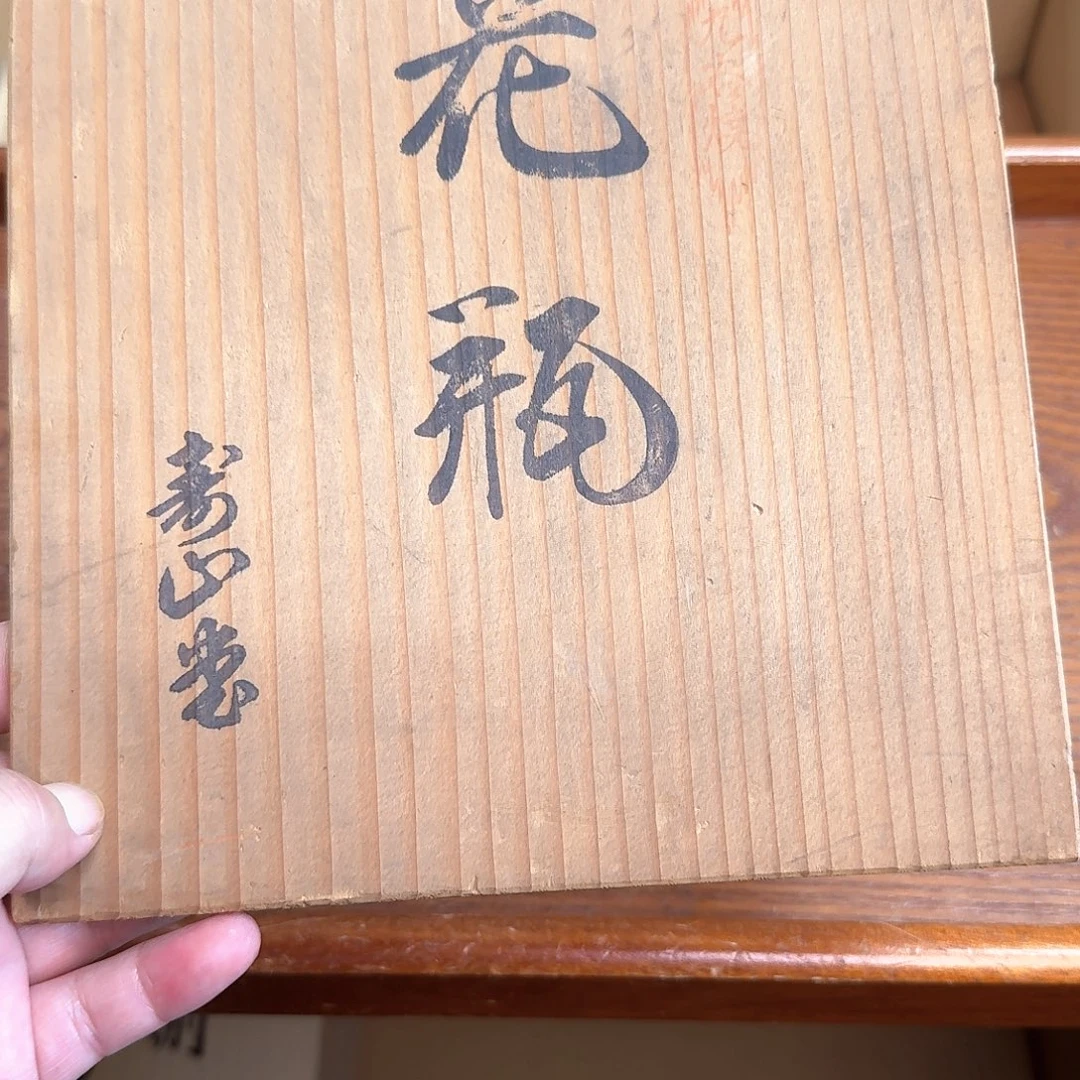 花瓶
寿山堂